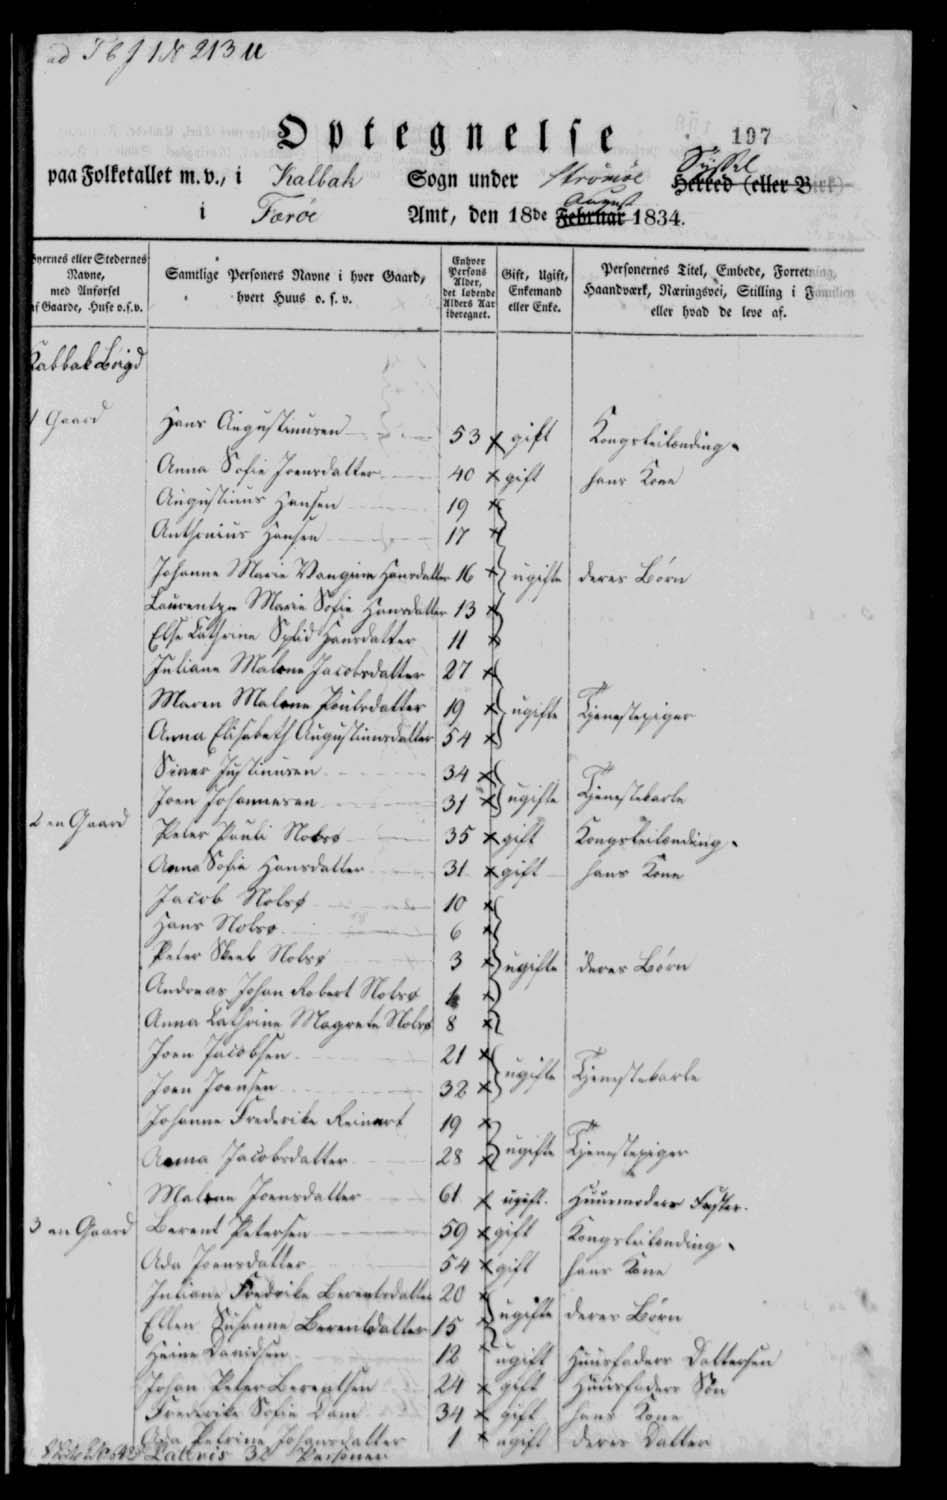 ad T b J 1 N 213 u
Optegnelse
197
paa Folketallet m. v., i Kalbak Sogn under Strömöe Herred (eller Birk) Syssel
i Færöe Amt, den 18de Februar August 1834.
Byernes eller Stedernes Navne, med Anførsel af Gaarde, Huse o.s.v.
Samtlige Personers Navne i hver Gaard, hvert Huus o. s. v.
Enhver Persons Alder, det løbende Alders Aar iberegnet.
Gift, Ugift, Enkemand eller Enke.
Personernes Titel, Embede, Forretning, Haandværk, Næringsvei, Stilling i Familien eller hvad de leve af.
Kalbak Böigd
1 Gaard Hans Augustinusen 53 gift Kongsleilænding
Anna Sofie Joensdatter 40 gift hans Kone
Augustinus Hansen 19
Anthonius Hansen 17
Johanne Marie Hansdatter 16 ugifte deres Börn
Marie Sofie Hansdatter 13
Else Cathrine Hansdatter 11
Juliane Malene Jacobsdatter 27
Maren Malene Poulsdatter 19 ugifte Tjenestepiger
Anna Elisabeth Augustinusdatter 54
Siver Justinusen 34
Joen Johannesen 31 ugifte Tjenestekarle
2 en Gaard Peter Pauli Nolsø 35 gift Kongsleilænding
Anna Sofie Hansdatter 31 gift hans Kone
Jacob Nolsø 10
Hans Nolsø 6
Peter Nolsø 3 ugifte deres Börn
Andreas Johan Robert Nolsø
Anna Cathrine Magrete Nolsø 8
Joen Jacobsen 21
Joen Joensen 32 ugifte Tjenestekarle
Johanne Frederike Reinert 19
Anna Jacobsdatter 28 ugifte Tjenestepiger
Malene Joensdatter 61 ugift. Huusmoders Faster.
3 en Gaard Berent Petersen 59 gift Kongsleilænding
Ada Joensdatter 54 gift hans Kone
Juliane Fredrike Berentsdatter 20
Ellen Susanne Berentsdatter 15 ugifte deres Börn
Heine Davidsen 12 ugift Huusfaders Dattersön
Johan Peter Berentsen 24 gift Huusfaders Sön
Frederike Sofie Dam 34 gift hans Kone
Ada Petrine Johansdatter 1 ugift deres Datter
Lateris 32 Personer